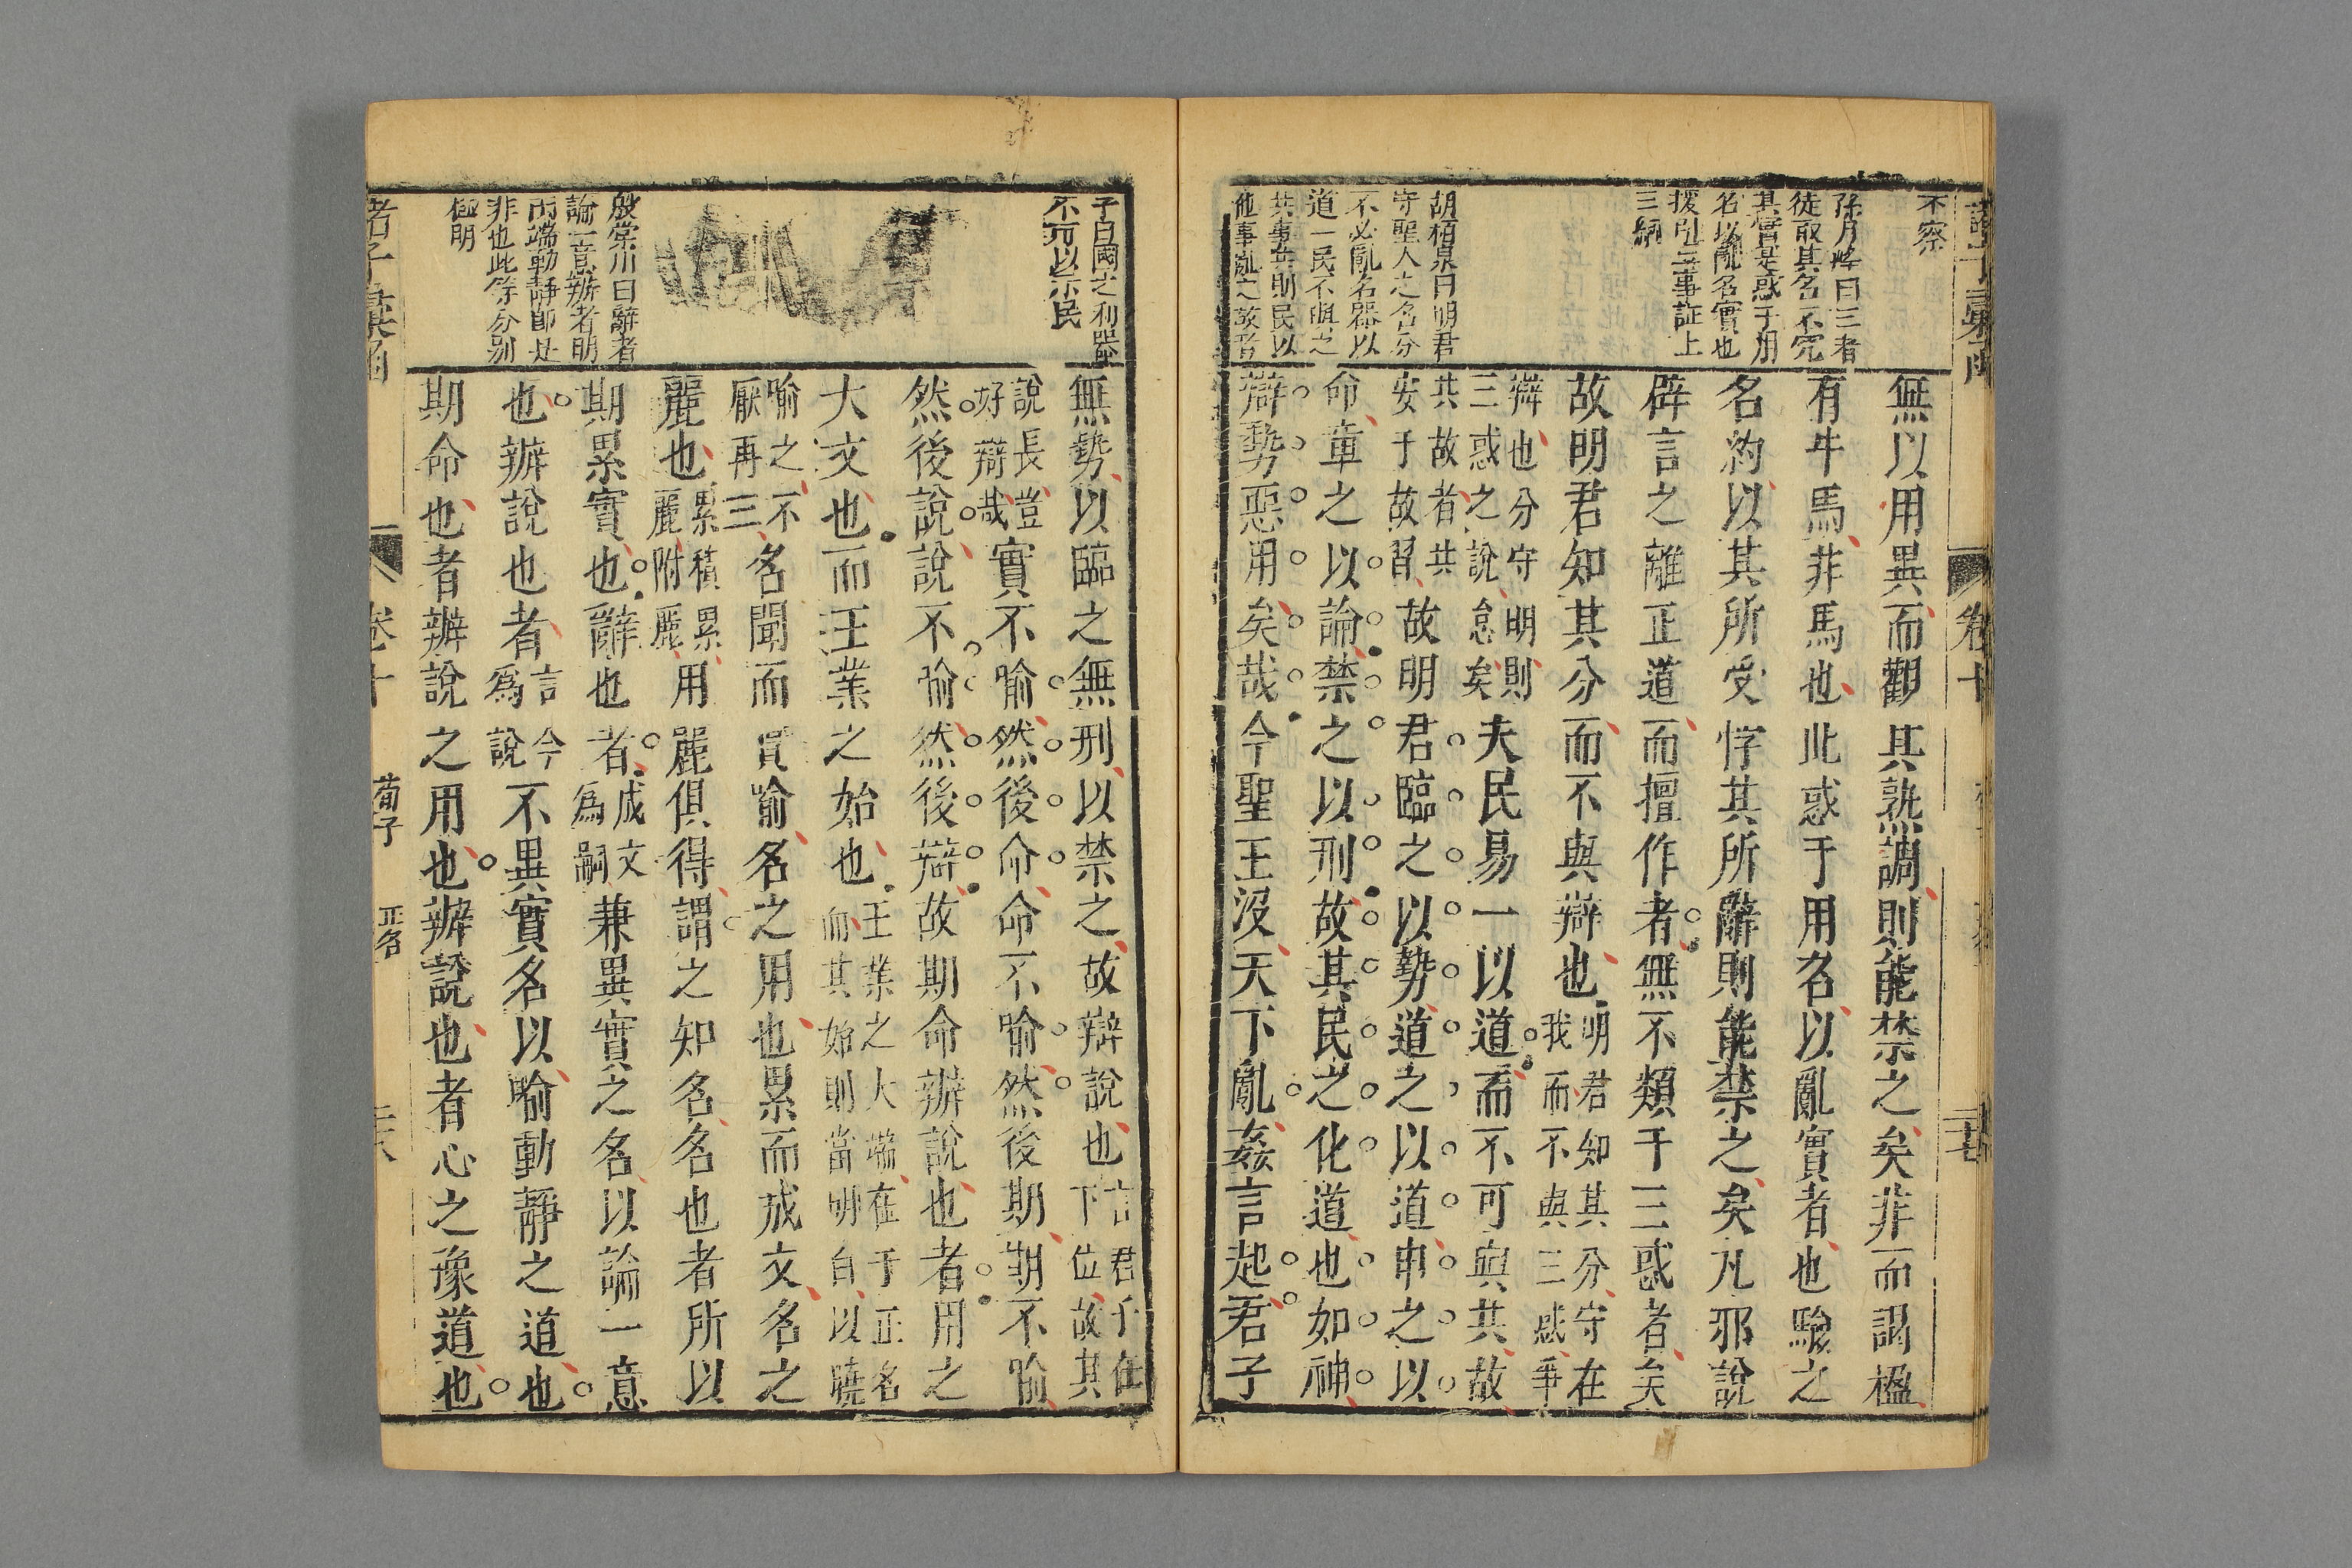 不察
陈月峰曰三者
徒取其名不究
其實是惑于用
名以亂名實也
援引三事証上
三綱
無以用異而觀其孰調則能禁之矣非而謁楹
有牛馬非馬也此惑于用名以亂實者也驗之
名約以其所受悖其所辭則能禁之矣凡邪說
辟言之離正道而擅作者無不類于三惑者矣
故明君知其分而不與辯也明君知其分守在
我而不與三惑爭
辯也分守明則
三惑之說怠矣夫民易一以道而不可與共故
共故者共
安于故習故明君臨之以勢道之以道申之以
命章之以論禁之以刑故其民之化道也如神
辯勢惡用矣哉今聖王沒天下亂姦言起君子
胡栢泉曰明君
守聖人之名分
不必亂名器以
道一民不與之
共事共則民以
他事亂之故者
卷十
子曰國之利器
不可以示民
無勢以臨之無刑以禁之故辯說也言君子在
下位故其
說長豈
好辯哉實不喻然後命命不喻然後期期不喻
然後說說不喻然後辯故期命辦說也者用之
大文也而王業之始也王業之大端在于正名
而其始則當明白以曉
喻之不
厭再三名聞而實喻名之用也累而成文名之
麗也累積累
麗附麗用麗俱得謂之知名名也者所以
期累實也辭也者成文
爲嗣兼異實之名以論一意
也辦說也者言今
爲說不異實名以喻動靜之道也
期命也者辦說之用也辦說也者心之豫道也
殷棠川曰辭者
論一意辦者明
兩端動靜即是
非也此等分別
極明
卷十
荀子
正名